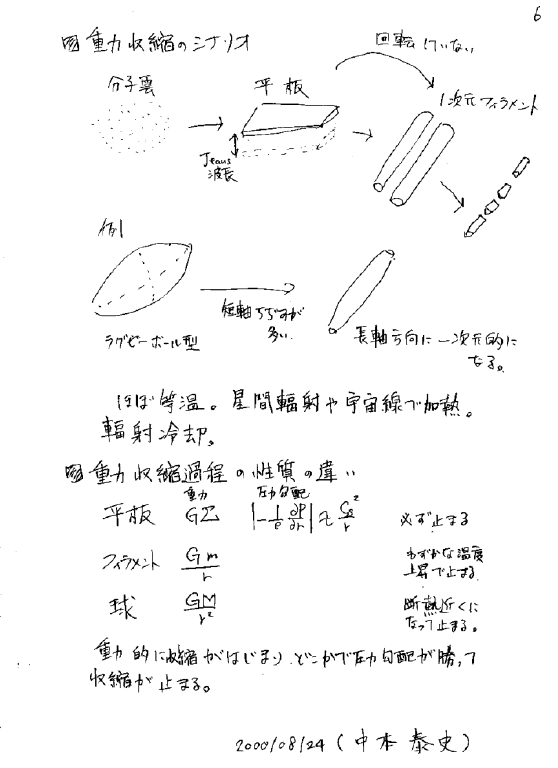 6
図 重力収縮のシナリオ
回転していない
分子雲
平板
1次元フィラメント
Jeans
波長
例
短軸ちぢみが
多い
ラグビーボール型
長軸方向に一次元的に
なる。
ほぼ等温。星間輻射や宇宙線で加熱。
輻射冷却。
図 重力収縮過程の性質の違い
重力 圧力勾配
平板 GΣ |-1/ρ ∂P/∂r| ≈ Cs²/r 必ず止まる
フィラメント Gm/r わずかな温度
上昇で止まる
球 GM/r² 断熱近くに
なって止まる。
重力的に収縮がはじまり、どこかで圧力勾配が勝って
収縮が止まる。
2000/08/24 (中本 泰史)